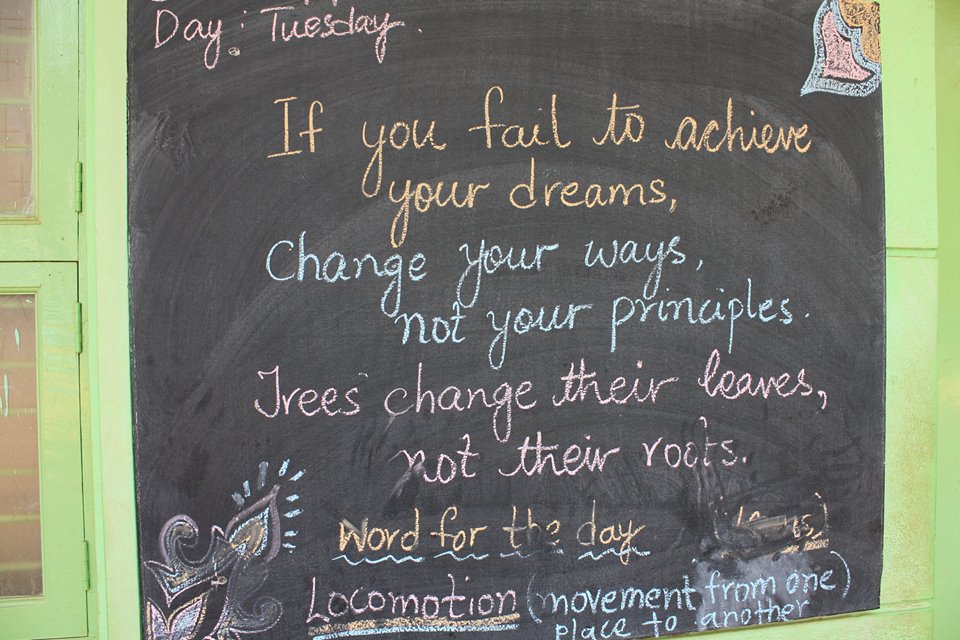 Day: Tuesday.
If you fail to achieve
your dreams,
Change your ways,
not your principles.
Trees change their leaves,
not their roots.
Word for the day
Locomotion (movement from one)
place to another